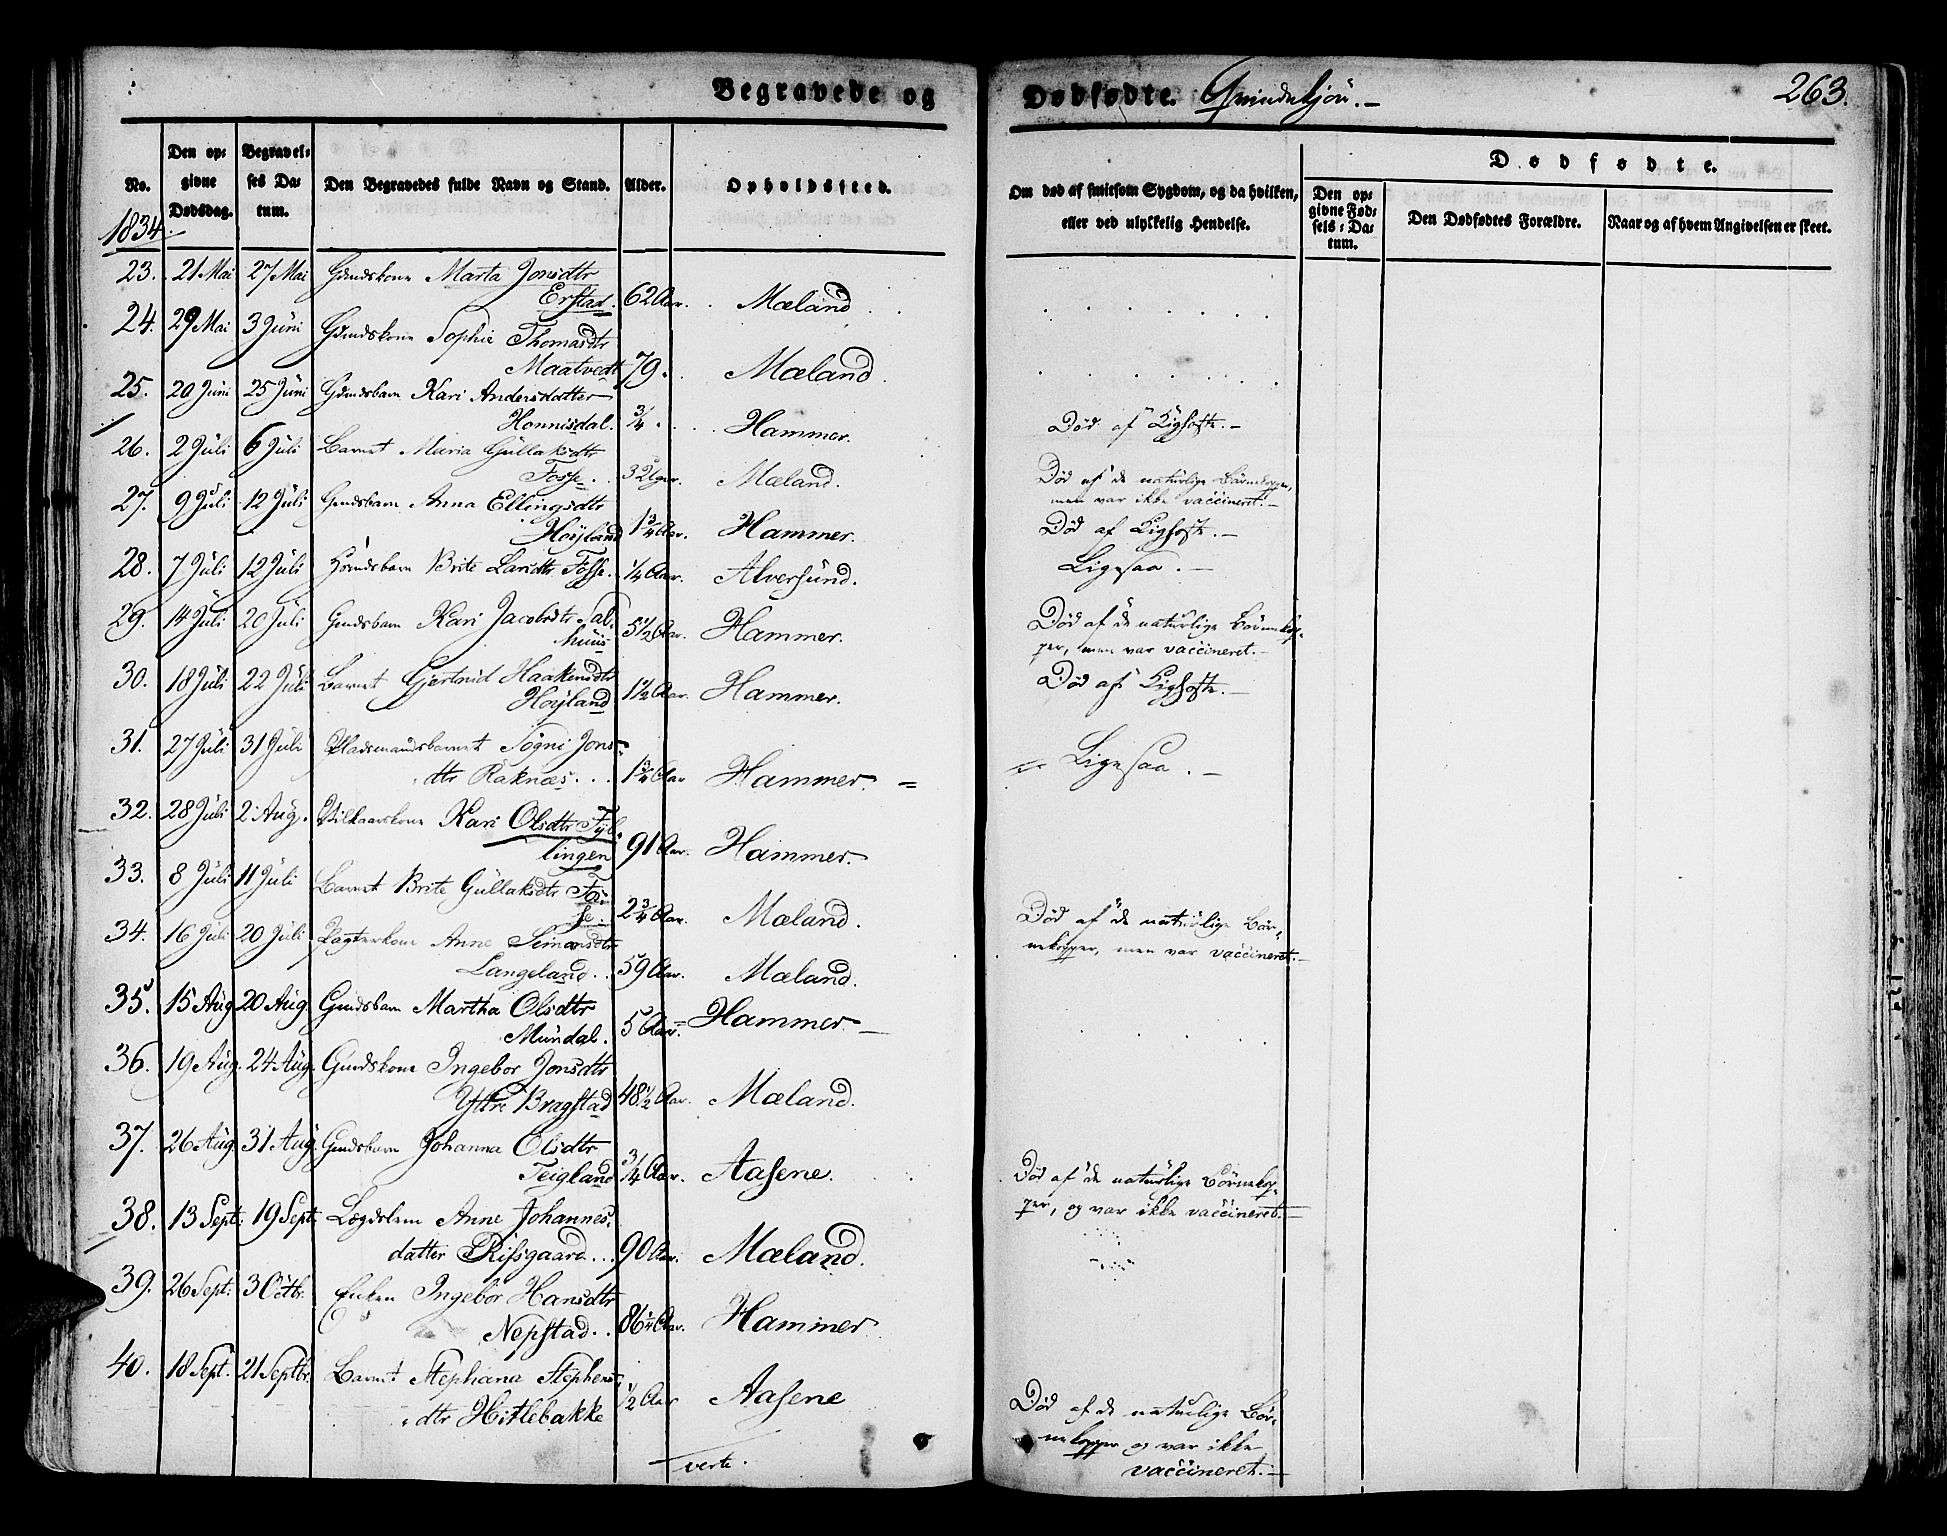 Begravede og Dødfødte. Qvindekjön.- 263.
No. Den opgivne Dødsdag. Begravelses Datum. Den Begravedes fulde Navn og Stand. Alder. Opholdssted. Om død af smitsom Sygdom, og da hvilken, eller ved ulykkelig Hendelse. Den opgivne Fødsels-Datum. Den Dødfødtes Forældre. Naar og af hvem Angivelsen er skeet.
Dødfødte.
1834.
23. 21 Mai 27 Mai Gaardskone Marta Jonsdtr
Erstad. 62 Aar. Mæland
24. 29 Mai 3 Juni Gaardskone Sophie Thomasdtr
Maatvedt 79. Mæland
25. 20 Juni 25 Juni Gaardsbarn Kari Andersdatter
Honnisdal. 3/4 Hammer. Død af Kighoste.-
26. 2 Juli 6 Juli Barnet Maria Gullaksdtr
Fosse. 3 Uger. Mæland. Død af de naturlige Börnekopper,
men var ikke vaccineret.-
27. 9 Juli 12 Juli Gaardsbarn Anna Ellingsdtr
Høyland 1 3/4 Aar. Hammer. Død af Kighoste.-
28. 7 Juli 12 Juli Huusmandsbarn Brite Larsdtr Fosse. 1/4 Aar. Alversund. Ligesaa.-
29. 14 Juli 20 Juli Gaardsbarn Kari Jacobsdtr Sal-
huus 5 1/2 Aar. Hammer. Død af de naturlige Börnekop-
per, men var vaccineret.-
30. 18 Juli 22 Juli Barnet Gjertrud Haakensdtr
Høyland 1 1/2 Aar. Hammer. Død af Kighoste.-
31. 27 Juli 31 Juli Pladsmandsbarnet Sögni Jons-
dtr Raknæs... 1 3/4 Aar Hammer. Ligesaa.-
32. 28 Juli 2 Aug. Vilkaarskone Kari Olsdtr Fyl-
lingen 91 Aar. Hammer.
33. 8 Juli 11 Juli Barnet Brite Gullaksdtr Fos-
se. 2 3/4 Aar. Mæland. Død af de naturlige Bör-
nekopper, men var vaccineret.-
34. 16 Juli 20 Juli Pagterkone Anne Simonsdtr
Langeland. 59 Aar. Mæland.
35. 15 Aug 20 Aug. Gaardsbarn Martha Olsdtr
Mundal. 5 Aar. Hammer.
36. 19 Aug. 24 Aug. Gaardskone Ingebor Jonsdtr
Yttre Bragstad 48 1/2 Aar. Mæland.
37. 26 Aug 31 Aug. Gaardsbarn Johanna Olsdtr
Teigland 3/4 Aar. Aasene. Død af de naturlige Börnekop-
per, og var ikke vaccineret.-
38. 13 Sept. 19 Sept. Lægdslem Anne Johannes-
datter Risgaard... 90 Aar. Mæland.
39. 26 Sept. 3 Octbr. Enken Ingebor Hansdtr
Nepstad.. 86 1/4 Aar. Hammer
40. 18 Sept. 21 Septbr. Barnet Stephana Stephens-
dtr Hitlebakke 1/2 Aar Aasene Død af de naturlige Bör-
nekopper og var ikke
vaccineret.-
verte.